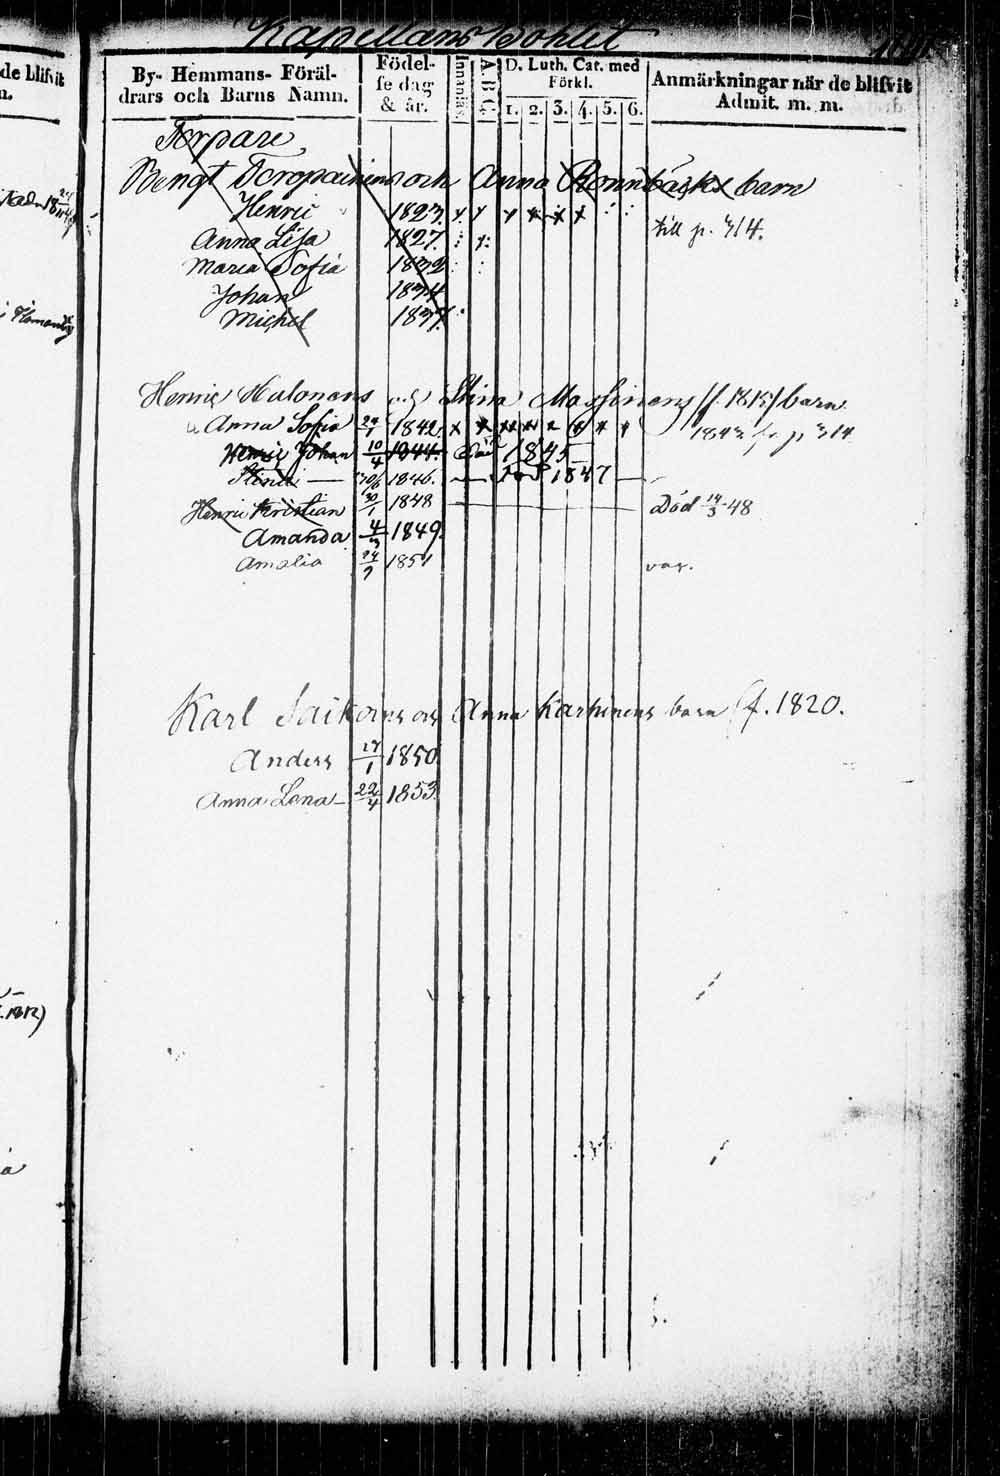 Kapellans Bohlet
By- Hemmans- Föräl-
drars och Barns Namn.
Födel-
se dag
& år.
Innanläs
A.B.C.
D. Luth. Cat. med
Förkl.
1. 2. 3. 4. 5. 6.
Anmärkningar när de blifvit
Admit. m. m.
Torpare
Bengt Toropainens och Anna Rönnbäcks barn
Henric 1823. x x x x x x
till p. 314.
Anna Lisa 1827.
Maria Sofia 1832
Johan 1834
Michel 1837.
Henric Halonens och Stina Massinens (f. 1815) barn
Anna Sofia 1842. x x x x x x x x
1843 fr p 314
Henric Johan 10/4 1844. död 1845
Stina 1846. död 1847
Henric Kristian 30/1 1848 Död 14/3 48
Amanda 4/3 1849.
Amalia 24/7 1851 vac.
Karl Saikoins och Anna Karhinens barn (f. 1820.
Anders 27/1 1850
Anna Lena 22/4 1853.
de blifvit